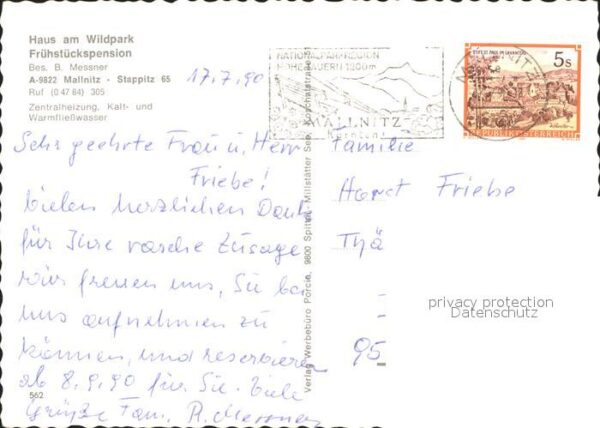 Haus am Wildpark
Frühstückspension
Bes. B. Messner
A-9822 Mallnitz - Stappitz 65
Ruf (0 47 64) 305
Zentralheizung, Kalt- und
Warmfließwasser
17.7.90
Sehr geehrte Frau u. Herr
Friebe!
vielen herzlichen Dank
für Ihre rasche Zusage
wir freuen uns, Sie bei
uns aufnehmen zu
können, und reservieren
ab 8.9.90 für Sie. Viele
Grüße Fam. R. Messner
562
Verlag Werbebüro Porcia, 9800 Spittal - Millstätter See
NATIONALPARKREGION
HOHE TAUERN 1200m
MALLNITZ
Kärnten
MALLNITZ
STIFT ST. PAUL IM LAVANTTAL
5s
REPUBLIK ÖSTERREICH
Familie
Horst Friebe
Thä
95
privacy protection
Datenschutz